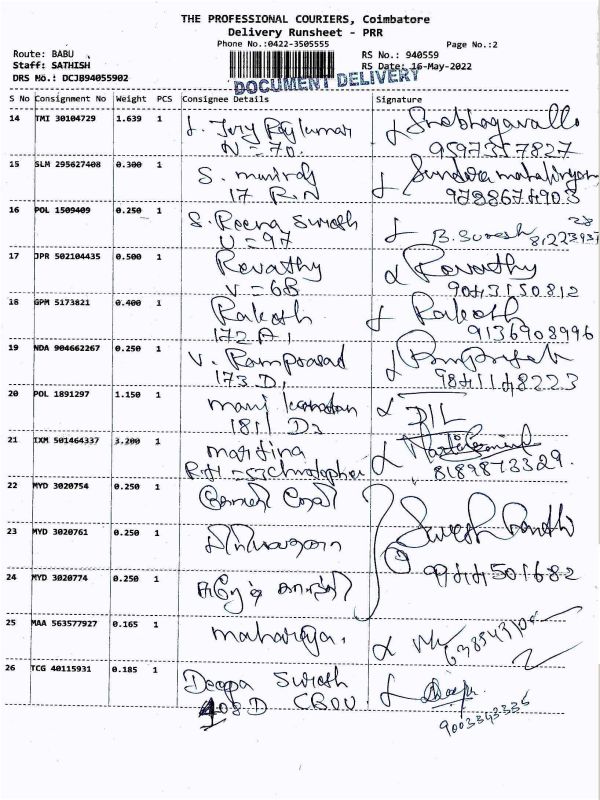 THE PROFESSIONAL COURIERS, Coimbatore
Delivery Runsheet - PRR
Phone No.:0422-3505555
Page No.:2
Route: BABU
Staff: SATHISH
DRS No.: DCJB94055902
RS No.: 940559
RS Date: 16-May-2022
DOCUMENT DELIVERY
S No Consignment No Weight PCS Consignee Details Signature
14 TMI 30104729 1.639 1 J. Jery Rajkumar
N = 70.
9597357827
15 SLM 295627408 0.300 1 S.
17 R.N
9728674903
16 POL 1509409 0.250 1 S. Reena Suresh B. Suresh
U = 97
17 JPR 502104435 0.500 1 Revathy Revathy
V = 6B 9043150812
18 GPM 5173821 0.400 1 Rakesh Rakesh
172 A, 9136908996
19 NDA 904662267 0.250 1 V. Ramprasad
173 D, 9841148223
20 POL 1891297 1.150 1 mani
181/ D2
21 IXM 501464337 3.200 1 martina
8189873329.
22 MYD 3020754 0.250 1
23 MYD 3020761 0.250 1 Suresh Gandhi
24 MYD 3020774 0.250 1 9944501682
25 MAA 563577927 0.165 1 maharaja.
26 TCG 40115931 0.185 1 Deepa Suresh Deepa
408 D
9003343336